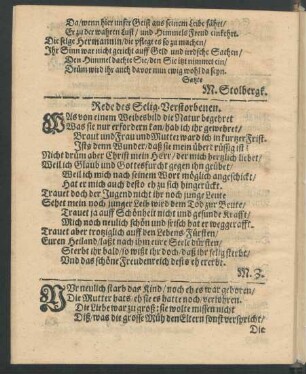 Da/wenn hier unser Geist aus seinem Leibe fährt/
Er zu der wahren Lust/ und Himmels Freud einkehrt.
Die selge Hermannin/ die pflegte es so zu machen/
Ihr Sinn war nicht gericht auff Geld und irrdsche Sachen/
Den Himmel dachte Sie/ den Sie itzt nimmet ein/
Drüm wird ihr auch davor nun ewig wohl da seyn.
Satzte
M. Stolbergk.
Rede des Selig-Verstorbenen.
Was von einem Weibesbild die Natur begehret
Was sie nur erfordern kan/ bab ich ihr gewehret/
Braut und Frau und Mutter ward ich in kurtzer Frist.
Ists denn Wunder/ daß sie mein überdrüssig ist!
Nicht drüm aber Christi mein Herr/ der mich hertzlich liebet/
Weil ich Glaub und Gottesfurcht gegen ihn geübet/
Weil ich mich nach seinem Wort möglich angeschickt/
Hat er mich auch desto eh zu sich hingerückt.
Trauet doch der Jugend nicht ihr noch junge Leute
Sehet mein noch junger Leib wird dem Tod zur Beute/
Trauet ja auff Schönheit nicht und gesunde Krafft/
Mich noch neulich schön und frisch hat er weggerafft.
Trauet aber trotziglich auff den Lebens-Fürsten/
Euren Heiland/ laßt nach ihm eure Seele dürsten/
Sterbt ihr bald/ so wißt ihr doch/ daß ihr selig sterbt/
Und das schöne Freudenreich desto eh ererbt.
M. Z.
Wie neulich starb das Kind/ noch eh es war geboren/
Die Mutter hats/ eh sie es hatte noch/ verlohren.
Die Liebe war zu groß: sie wolte missen nicht
Diß/ was die grosse Müh den Eltern sonst verspricht/
Die